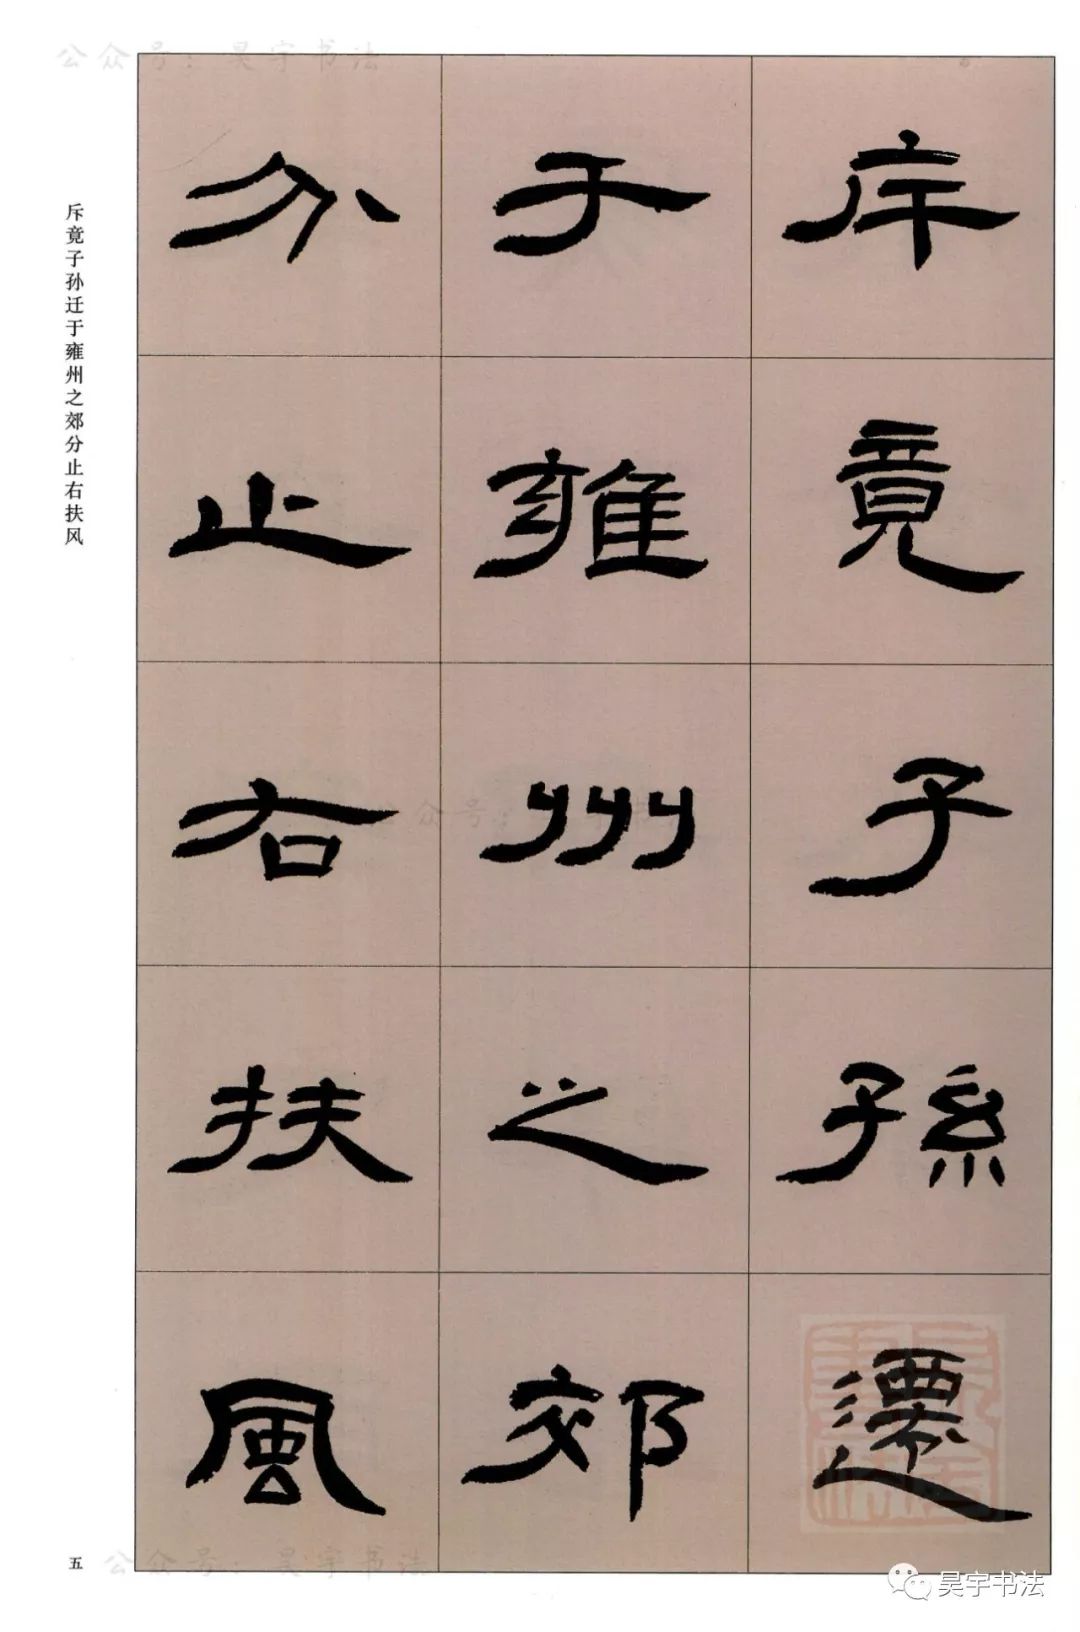 公众号：昊宇书法
斥竟子孫遷
于雍州之郊
分止右扶風
斥竟子孙迁于雍州之郊分止右扶风
公众号：昊宇书法
五
公众号：昊宇书法
昊宇书法